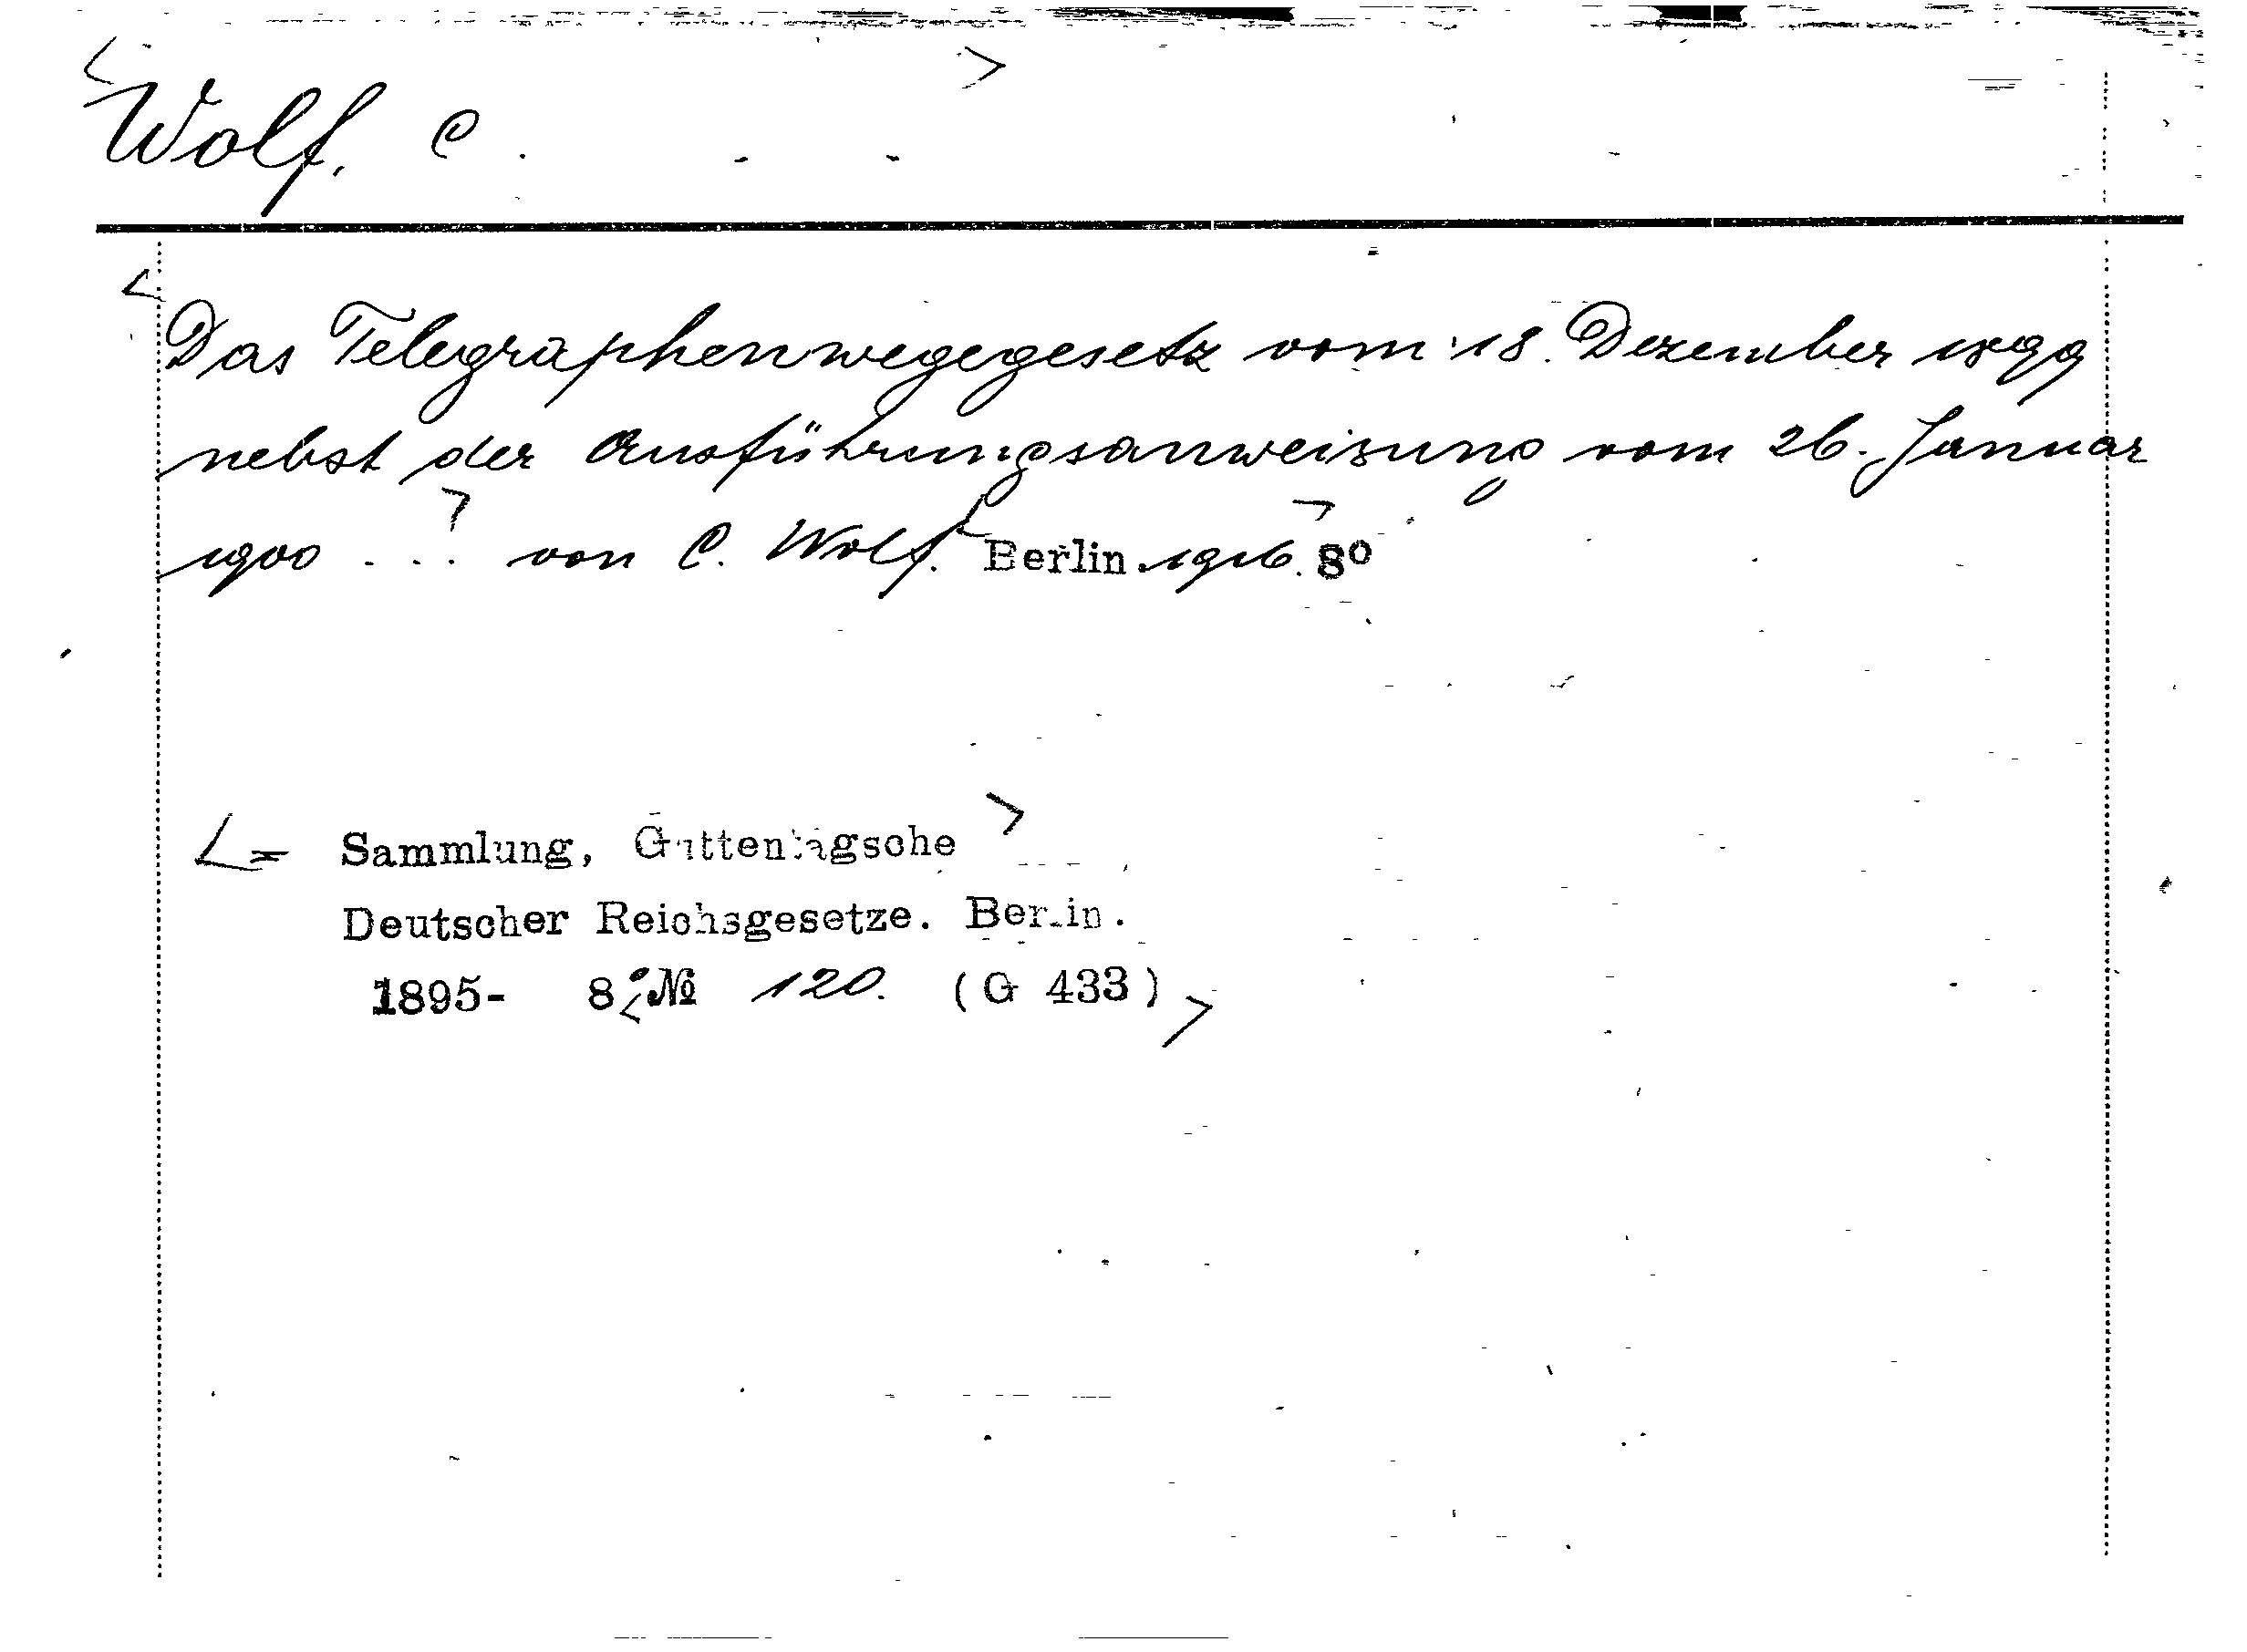 Wolf, C.
Das Telegraphenwegegesetz vom 18. Dezember 1899
nebst der Ausführungsanweisung vom 26. Januar
1900 ... von C. Wolf. Berlin. 1916. 8º
= Sammlung, Guttentagsche
Deutscher Reichsgesetze. Berlin.
1895- 8º № 120. (G 433)